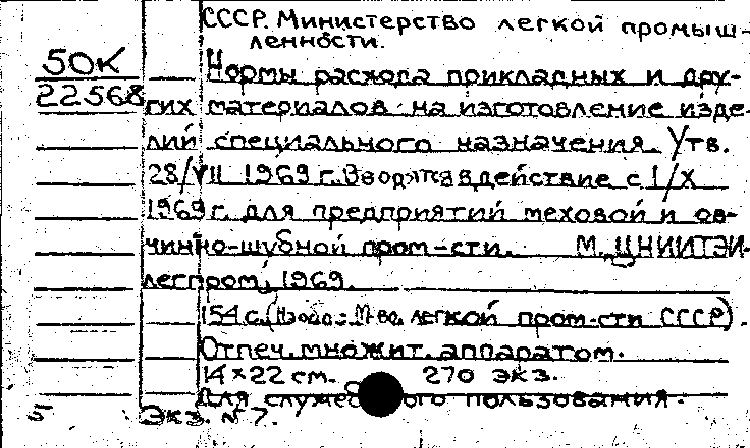 СССР. Министерство легкой промыш-
ленности.
50К
Нормы расхода прикладных и дру-
22568
гих материалов на изготовление изде-
лий специального назначения. Утв.
28/VII 1969 г. Вводятся в действие с 1/X
1969 г. для предприятий меховой и ов-
чинно-шубной пром-сти. М., ЦНИИТЭИ-
легпром, 1969.
154 с. легкой пром-сти СССР).
Отпеч. множит. аппаратом.
14×22 см. 270 экз.
Для пользования.
5 Экз. №7.